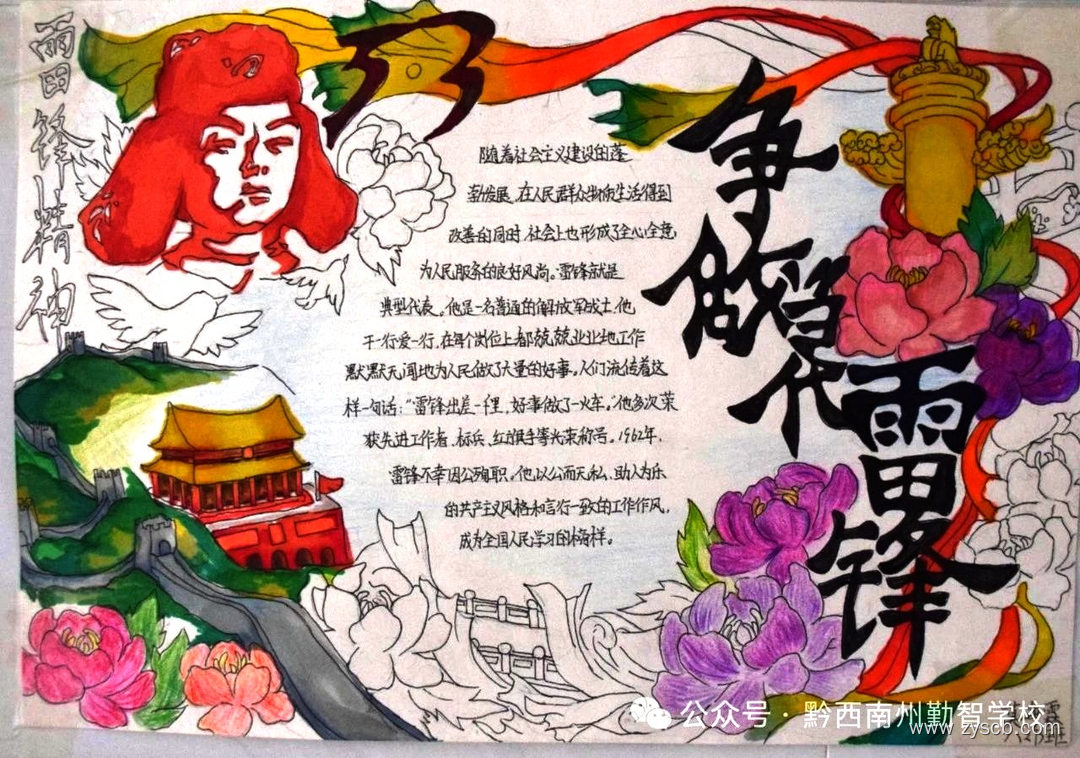 雷锋精神
争做当代雷锋
随着社会主义建设的蓬
勃发展,在人民群众物质生活得到
改善的同时,社会上也形成了全心全意
为人民服务的良好风尚。雷锋就是
典型代表。他是一名普通的解放军战士,他
干一行爱一行,在每个岗位上都兢兢业业地工作
默默无闻地为人民做了大量的好事。人们流传着这
样一句话:“雷锋出差一千里,好事做了一火车。”他多次荣
获先进工作者、标兵、红旗手等光荣称号。1962年,
雷锋不幸因公殉职。他以公而无私、助人为乐
的共产主义风格和言行一致的工作作风,
成为全国人民学习的榜样。
公众号·黔西南州勤智学校
www.zyscb.com